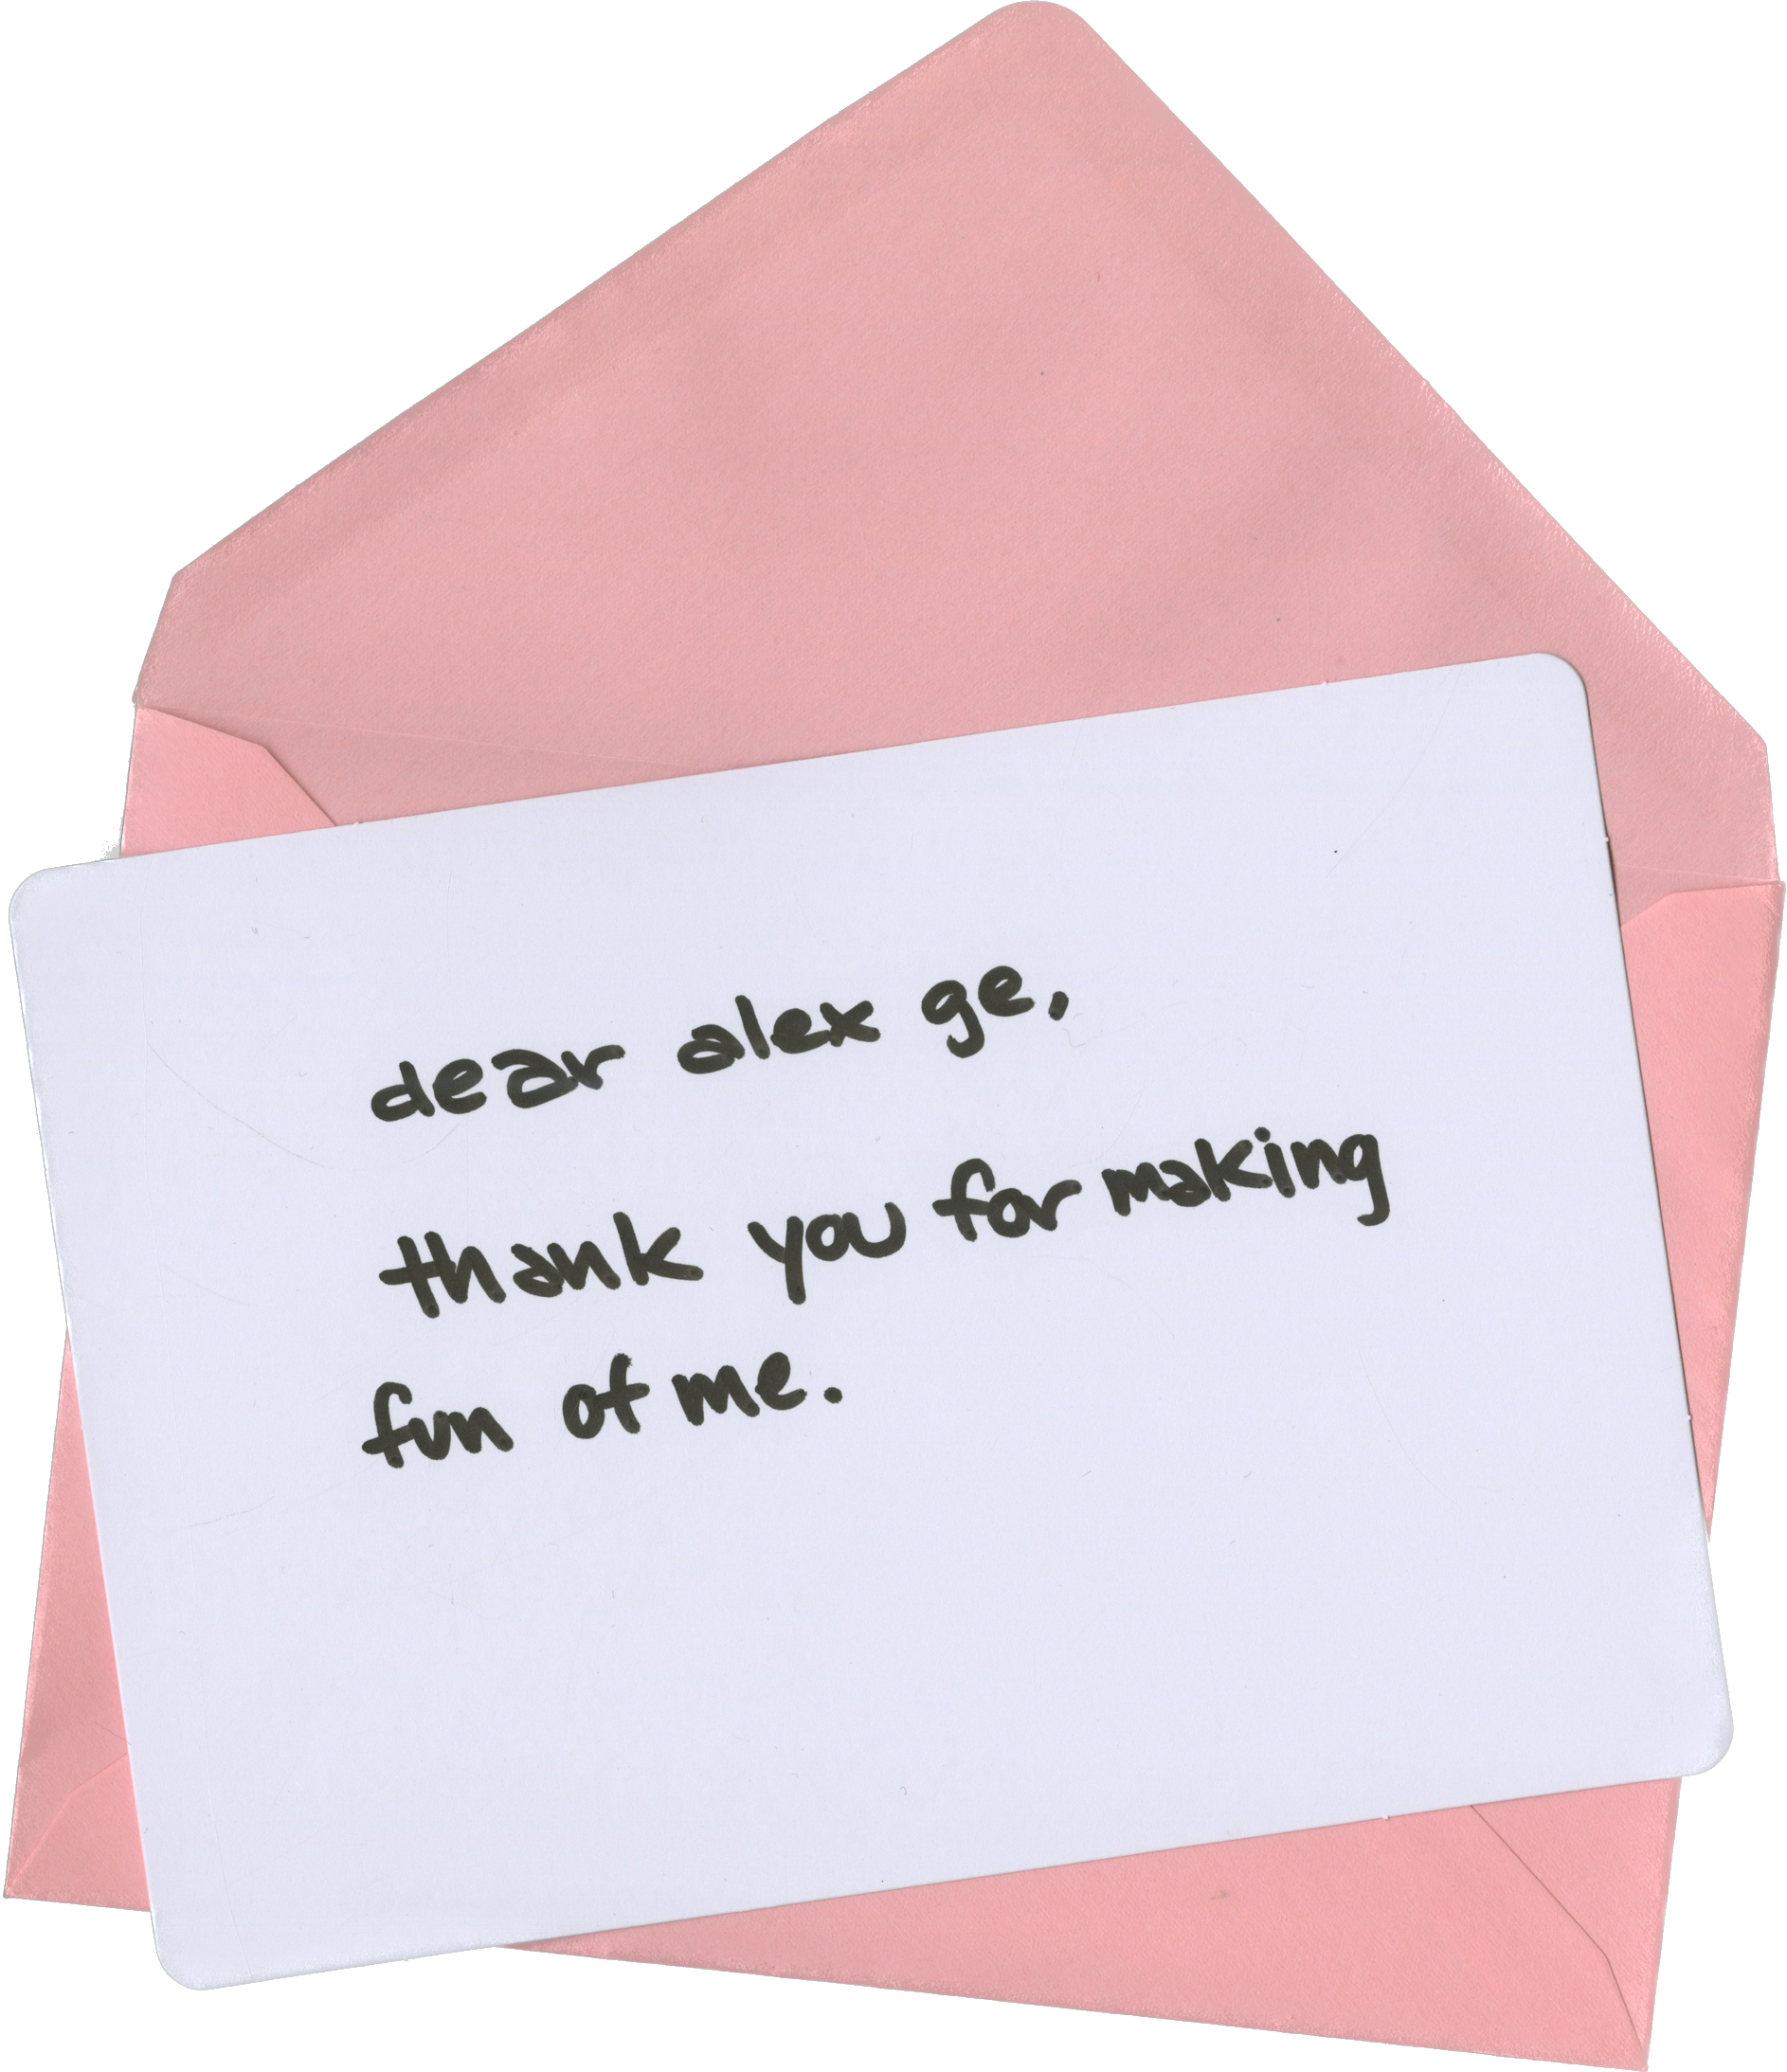 dear alex ge,
thank you for making
fun of me.